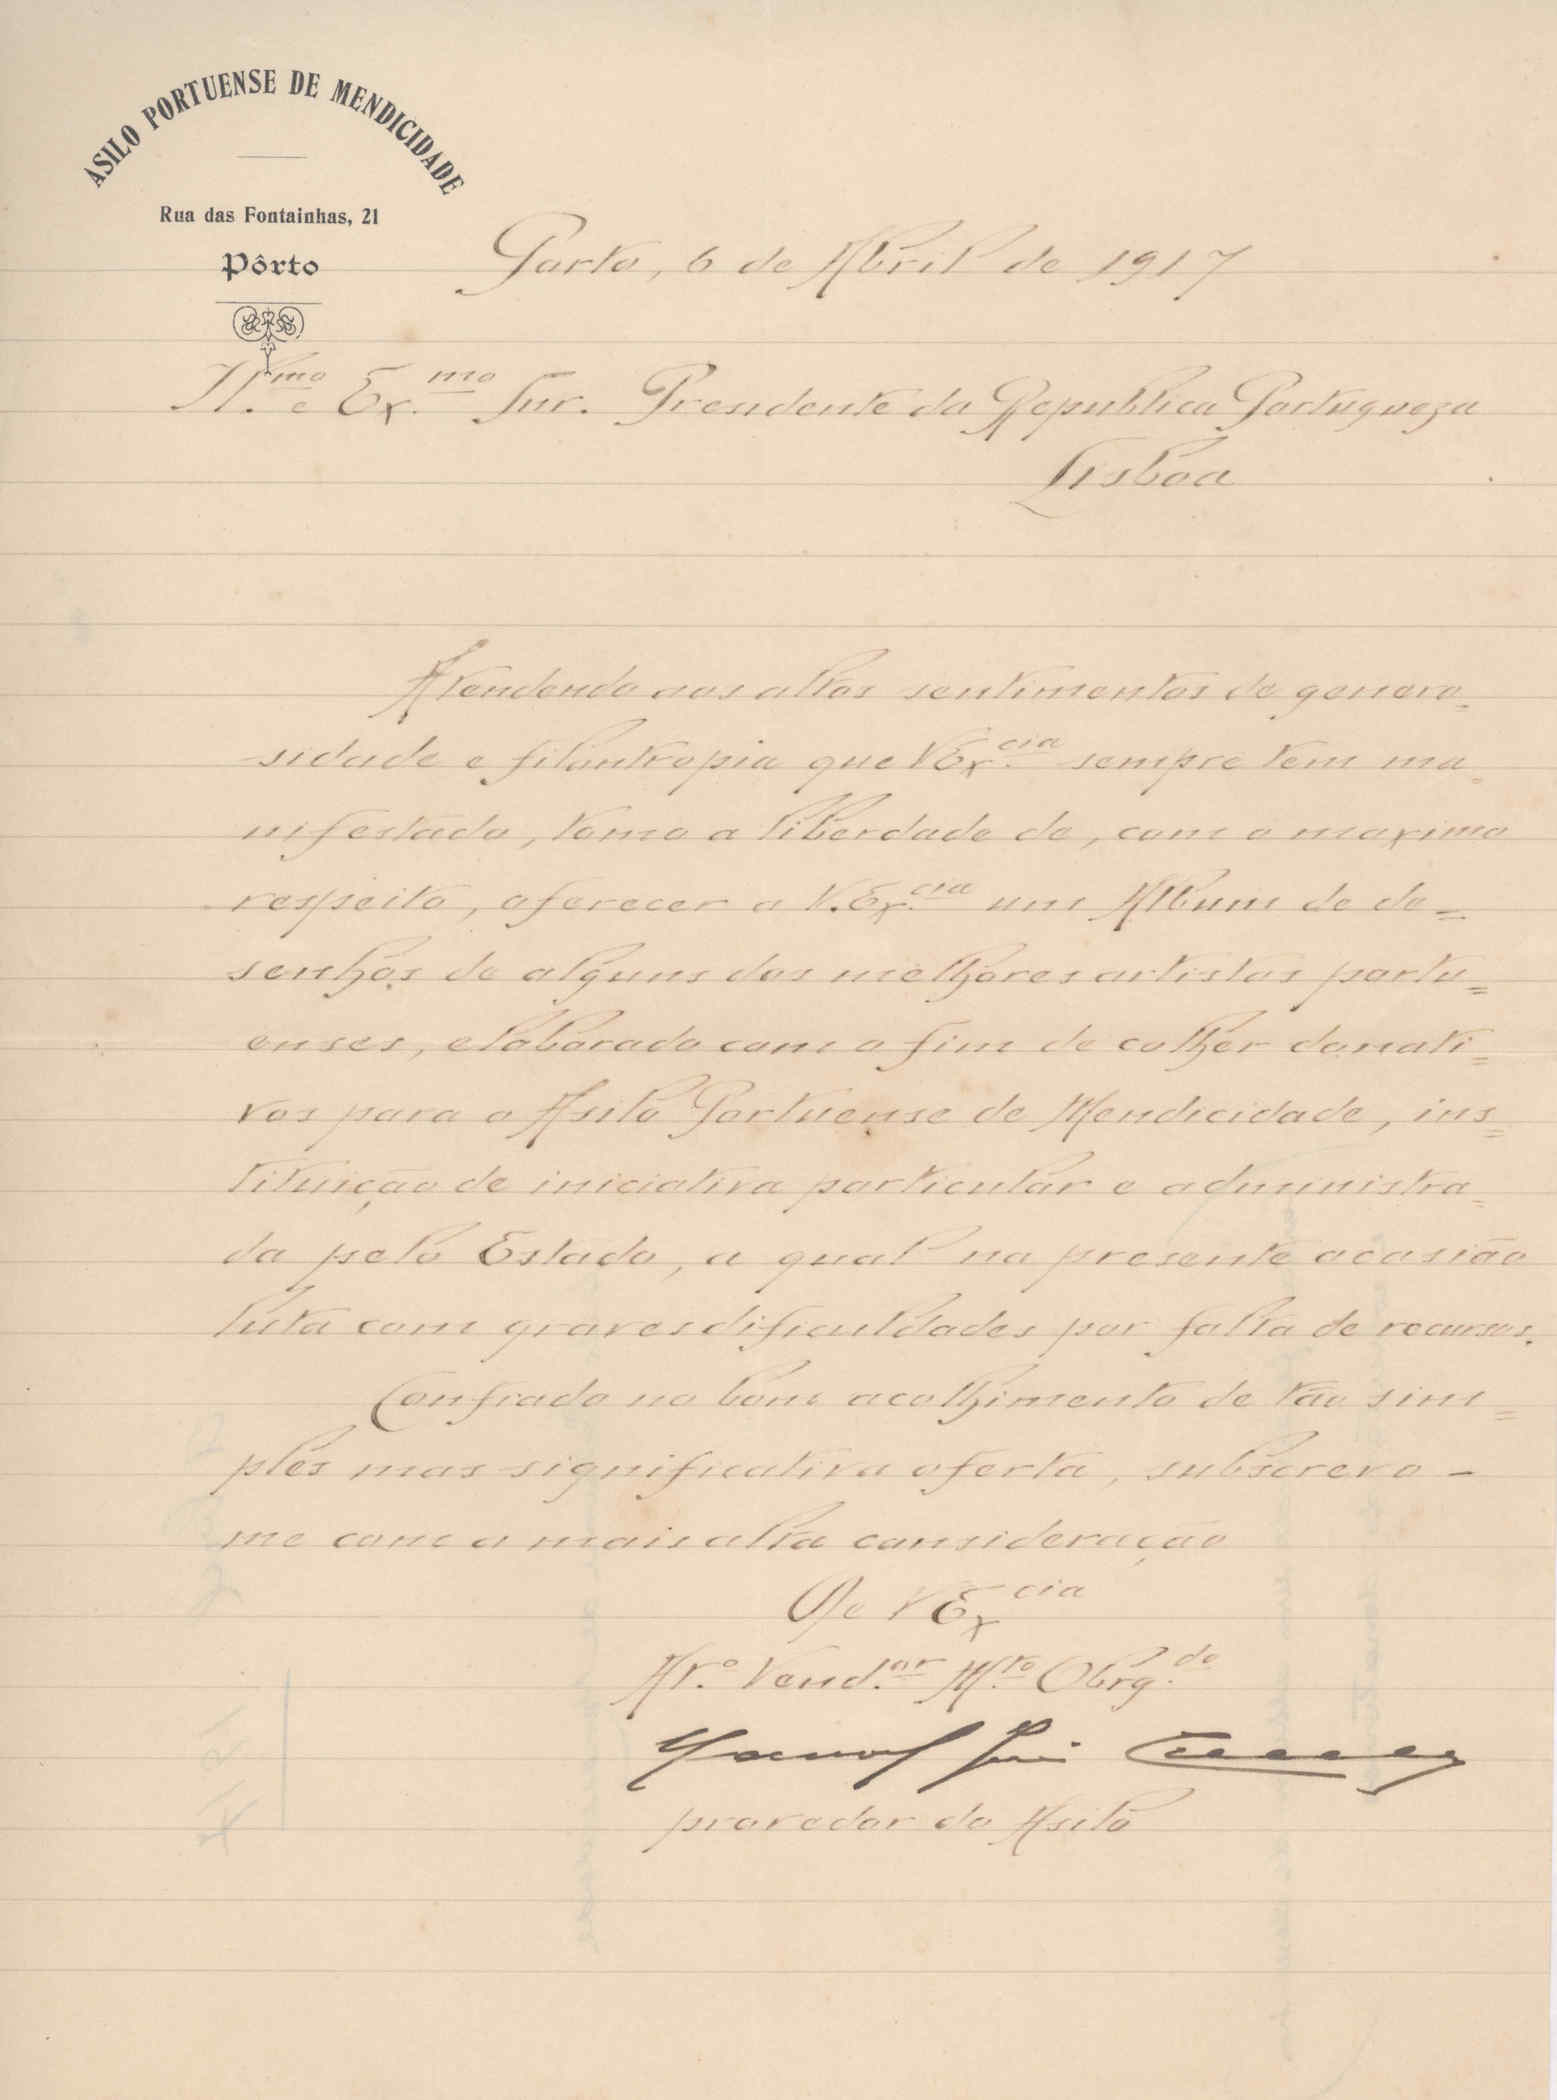 ASILO PORTUENSE DE MENDICIDADE
Rua das Fontainhas, 21
Pôrto
Porto, 6 de Abril de 1917
Il.mo e Ex.mo Snr. Presidente da Republica Portugueza
Lisboa
Atendendo aos altos sentimentos de genero-
sidade e filantropia que V Ex.cia sempre tem ma-
nifestado, tomo a liberdade de, com o maximo
respeito, oferecer a V. Ex.cia um Album de de=
senhos de alguns dos melhores artistas portu=
enses, elaborado com o fim de colher donati=
vos para o Asilo Portuense de Mendicidade, ins=
tituição de iniciativa particular e administra=
da pelo Estado, a qual na presente ocasião
luta com graves dificuldades por falta de recursos.
Confiado no bom acolhimento de tão sim=
ples mas significativa oferta, subscrevo -
me com a mais alta consideração
De V Ex cia
At.º Vend.or M.to Obrg.do
Manoel
provedor do Asilo